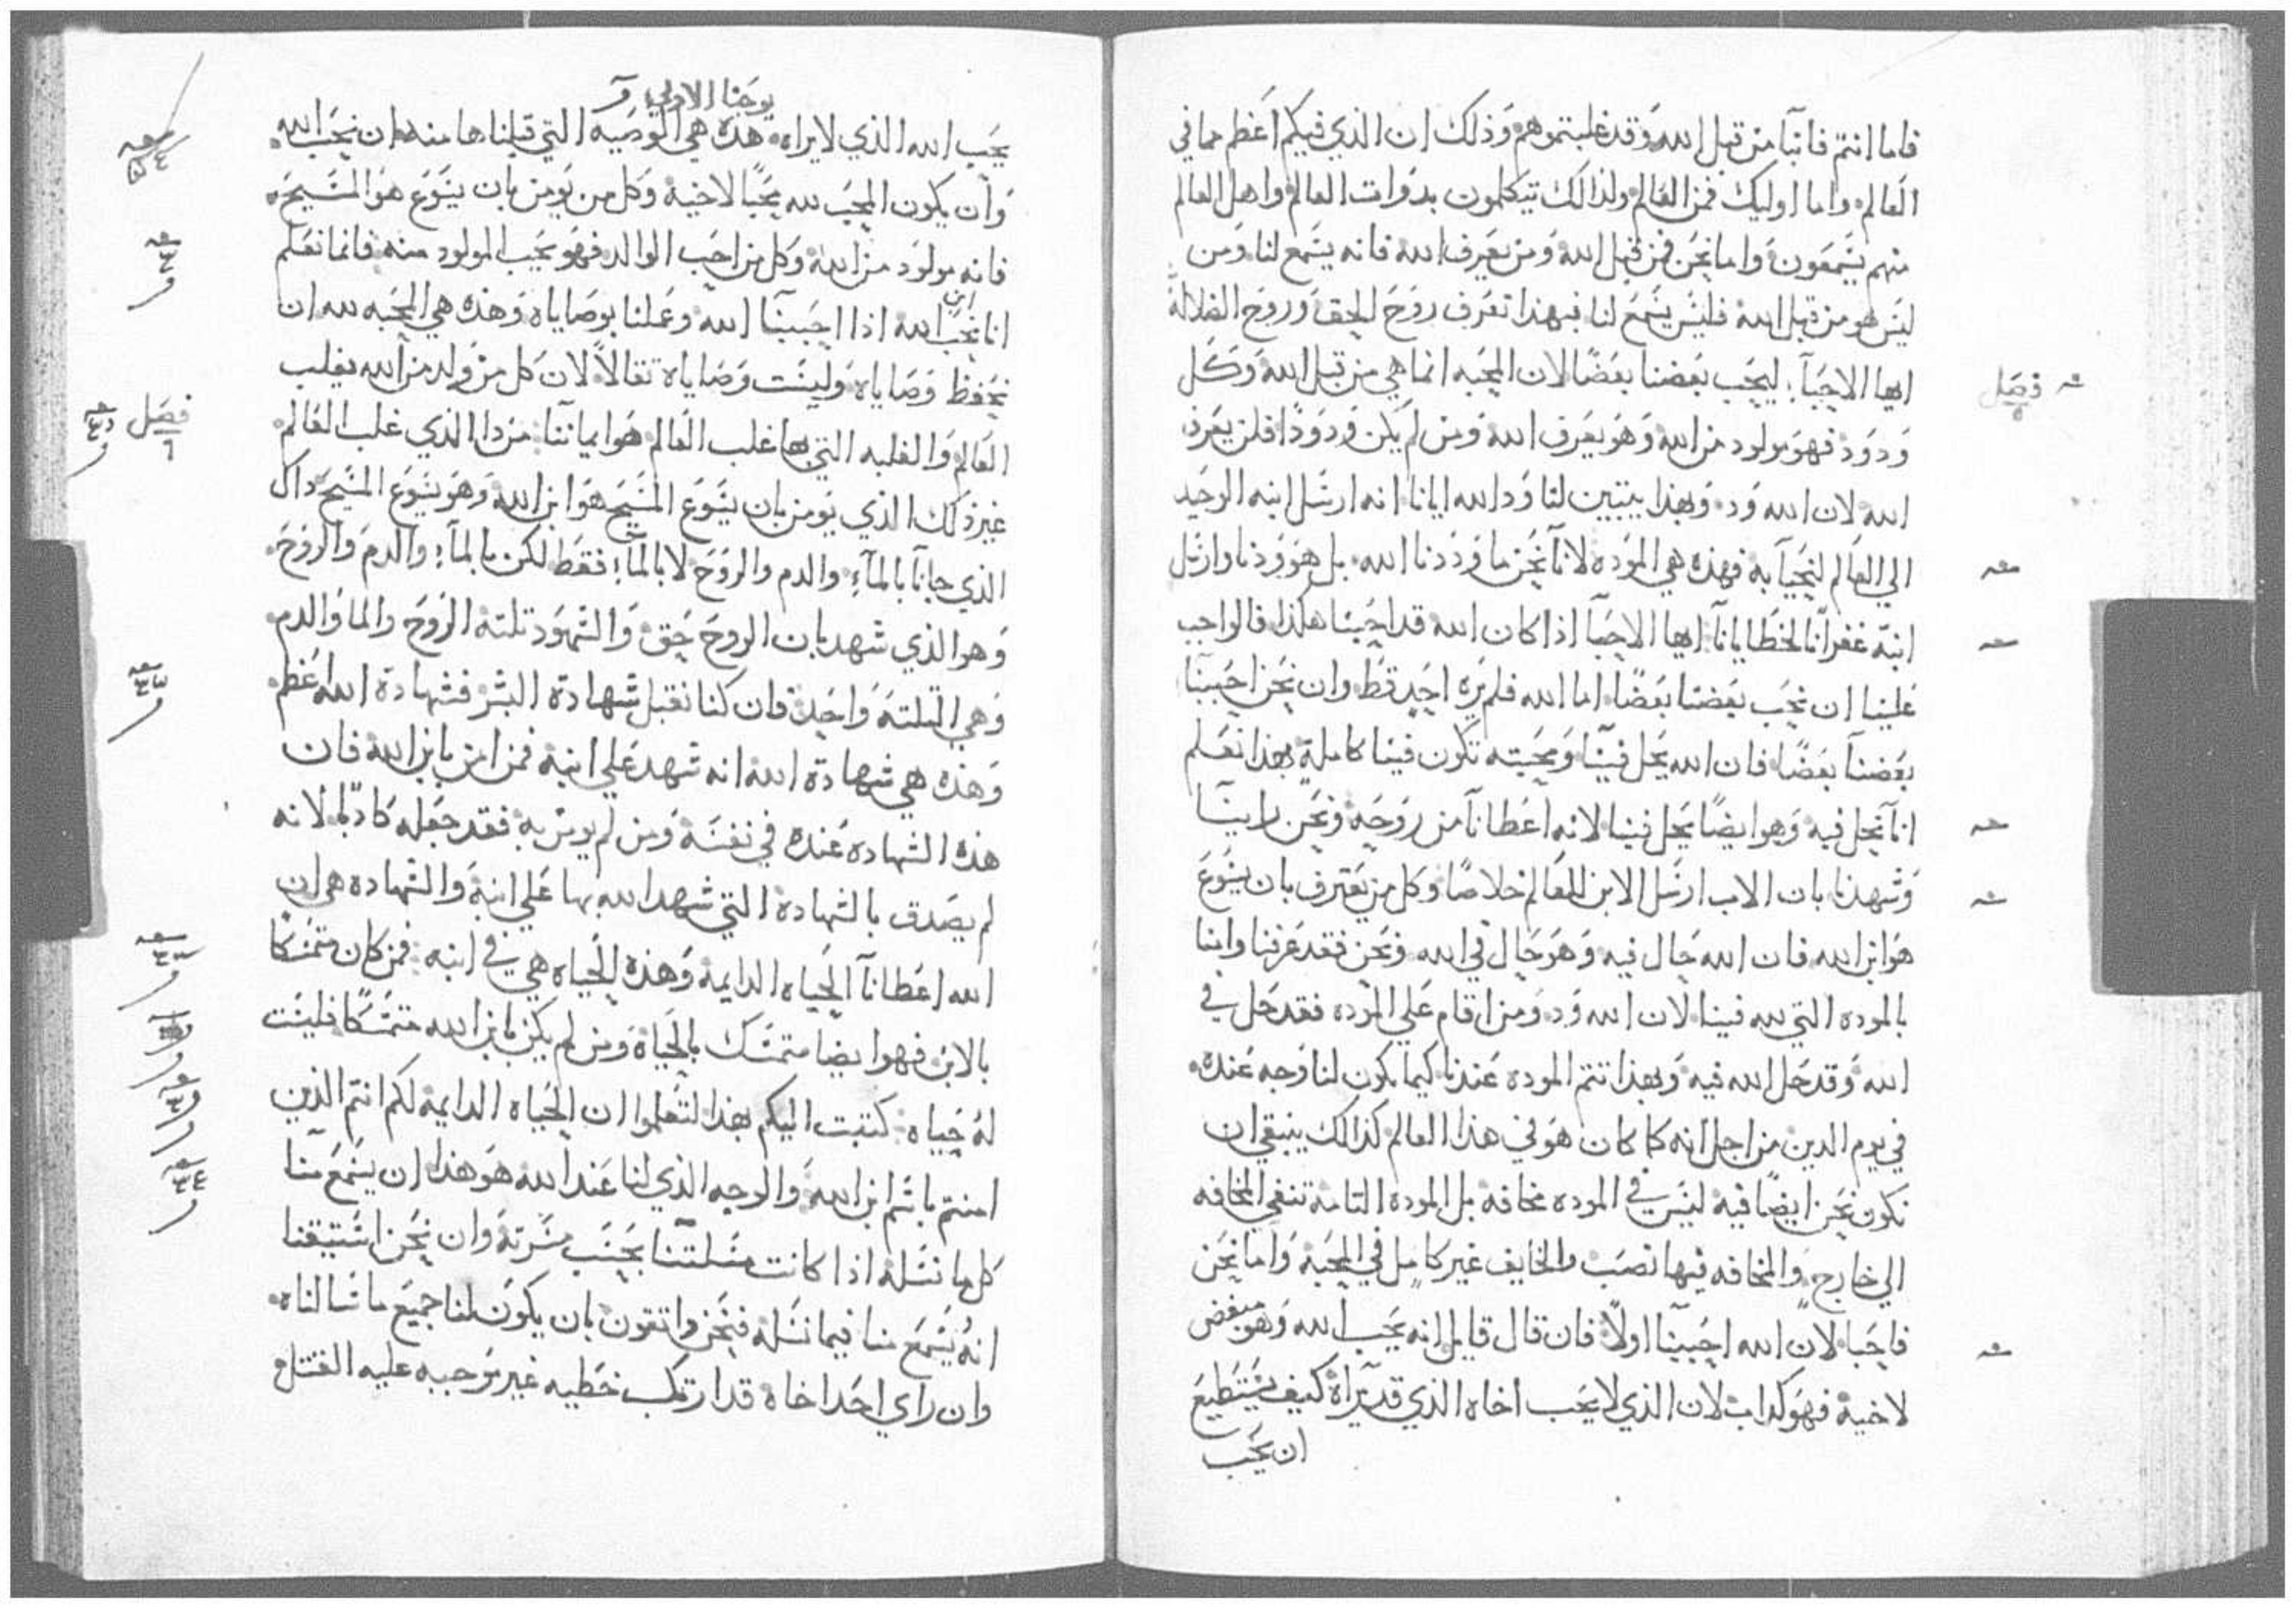 فاما انتم فانباَ من قبل الله وقد غلبتموهم وذلك ان الذي فيكم اعظم مما في
العالم واما اوليك فمن العالم ولذالك تيكلمون بدوات العالم واهل العالم
منهم يسَمعون واما نحن فمن قبل الله ومن يعرف الله فانه يسَمع لنا ومن
ليسَ هو من قبل الله فليسَ يسَمع لنا فبهذا تعرف روح الحق وروح الضلالة
فصل ٥
ايها الاحبآء ليحب بعضنا بعضًا لان المحبه انما هي من قبل الله وكل
ودود فهو مولود من الله وهو يعرف الله ومن لم يكن ودودًا فلن يعرف
الله لان الله ود وبهذا يتبين لنا ود الله ايانا انه ارسَل ابنه الوحيد
الي العالم لنحيآ به فهذه هي الموده لانآ نحن ما وددنا الله بل هو ودنا وارسَل
ابنه غفرانا لخطايانا ايها الاحبآ اذا كان الله قد احبنا هكذا فالواجب
علينا ان نحب بعضنا بعضًا اما الله فلم يره احد قط وان نحن احببنا
بعضنا بعضًا فان الله يحل فينا ومحبته تكون فينا كاملة بهذا نعلم
انآ نحل فيه وهو ايضًا يحل فينا لانه اعطانآ من روحه ونحن راينآ
وشهدنا بان الاب ارسَل الابن للعالم خلاصًا وكل من يعترف بان يسَوع
هو ابن الله فان الله حال فيه وهو حال في الله ونحن فقد عرفنا وامنا
بالموده التي لله فينا لان الله ود ومن اقام علي الموده فقد حل في
الله وقد حل الله فيه وبهذا تتم الموده عندنا كيما يكون لنا وجه عنده
في يوم الدين من اجل انه كما كان هو في هذا العالم كذالك ينبغي ان
نكون نحن ايضًا فيه ليسَ في الموده مخافه بل الموده التامة تنفي المخافه
الي خارج والمخافه فيها نصب والخايف غير كامل في المحبة واما نحن
فاحبا لان الله احببنا اولاً فان قال قايل انه يحب الله وهو مبغض
لاخيه فهو كداب لان الذي لا يحب اخاه الذي قد يراه كيف يسَتطيع
ان يحب
يوحنا الاولي
يحب الله الذي لا يراه هذه هي الوصيه التي قبلناها منه ان نحب الله
وان يكون المحب لله محبًا لاخيه وكل من يومن بان يسَوع هو المسَيح
فانه مولود من الله وكل من احب الوالد فهو يحب المولود منه فانما نعلم
انا نحب ابن الله اذا احببنا الله وعملنا بوصاياه وهذه هي المحبه لله ان
نحفظ وصاياه وليسَت وصاياه تقالاً لان كل من ولد من الله يغلب
فصل ٦
العالم والغلبه التي بها غلب العالم هو ايماننا من دا الذي غلب العالم
غير ذلك الذي يومن بان يسَوع المسَيح هو ابن الله وهو يسَوع المسَيح داك
الذي جانآ بالمآء والدم والروح لا بالمآء فقط لكن بالمآء والدم والروح
وهو الذي شهد بان الروح حق والشهود تلته الروح والما والدم
وهي التلته واحد فان كنا نقبل شهادة البشر فشهادة الله اعظم
وهذه هي شهادة الله انه شهد علي ابنه فمن امن بابن الله فان
هذه الشهاده عنده في نفسَه ومن لم يومن به فقد جعله كادبًا لانه
لم يصدق بالشهادة التي شهد الله بها علي ابنه والشهاده هي ان
الله اعطانآ الحياه الدايمه وهذه الحياه هي في ابنه فمن كان متمسَكًا
بالابن فهو ايضا متمسَك بالحياة ومن لم يكن بابن الله متمسَكًا فليسَت
له حياه كتبت اليكم بهذا لتعلموا ان الحياه الدايمه لكم انتم الذين
امنتم باسَم ابن الله والوجه الذي لنا عند الله هو هذا ان يسَمع منا
كل ما نسَله اذا كانت مسَلتنا بحسَب مسَرته وان نحن اسَتيقنا
انهُ يسَمع منا فيما نسَله فنحن واتقون بان يكون لنا جميع ما سَالناه
وان راي احد اخاه قد ارتكب خطيه غير موجبه عليه القتل